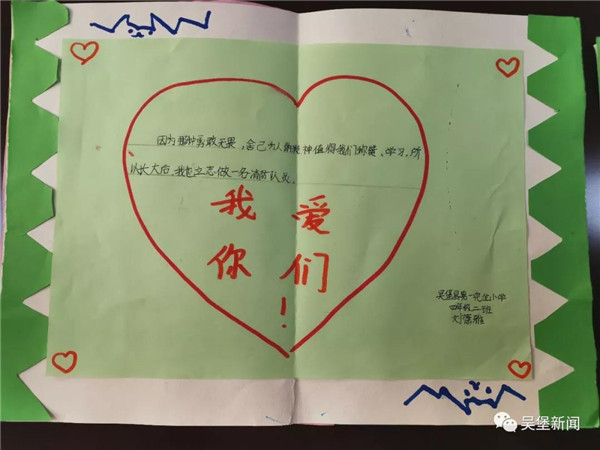 因为那种勇敢无畏,舍己为人的精神值得我们称赞、学习,所
以长大后,我也立志做一名消防队员。
我爱
你们
!
吴堡县第一完全小学
四年级二班
刘
吴堡新闻